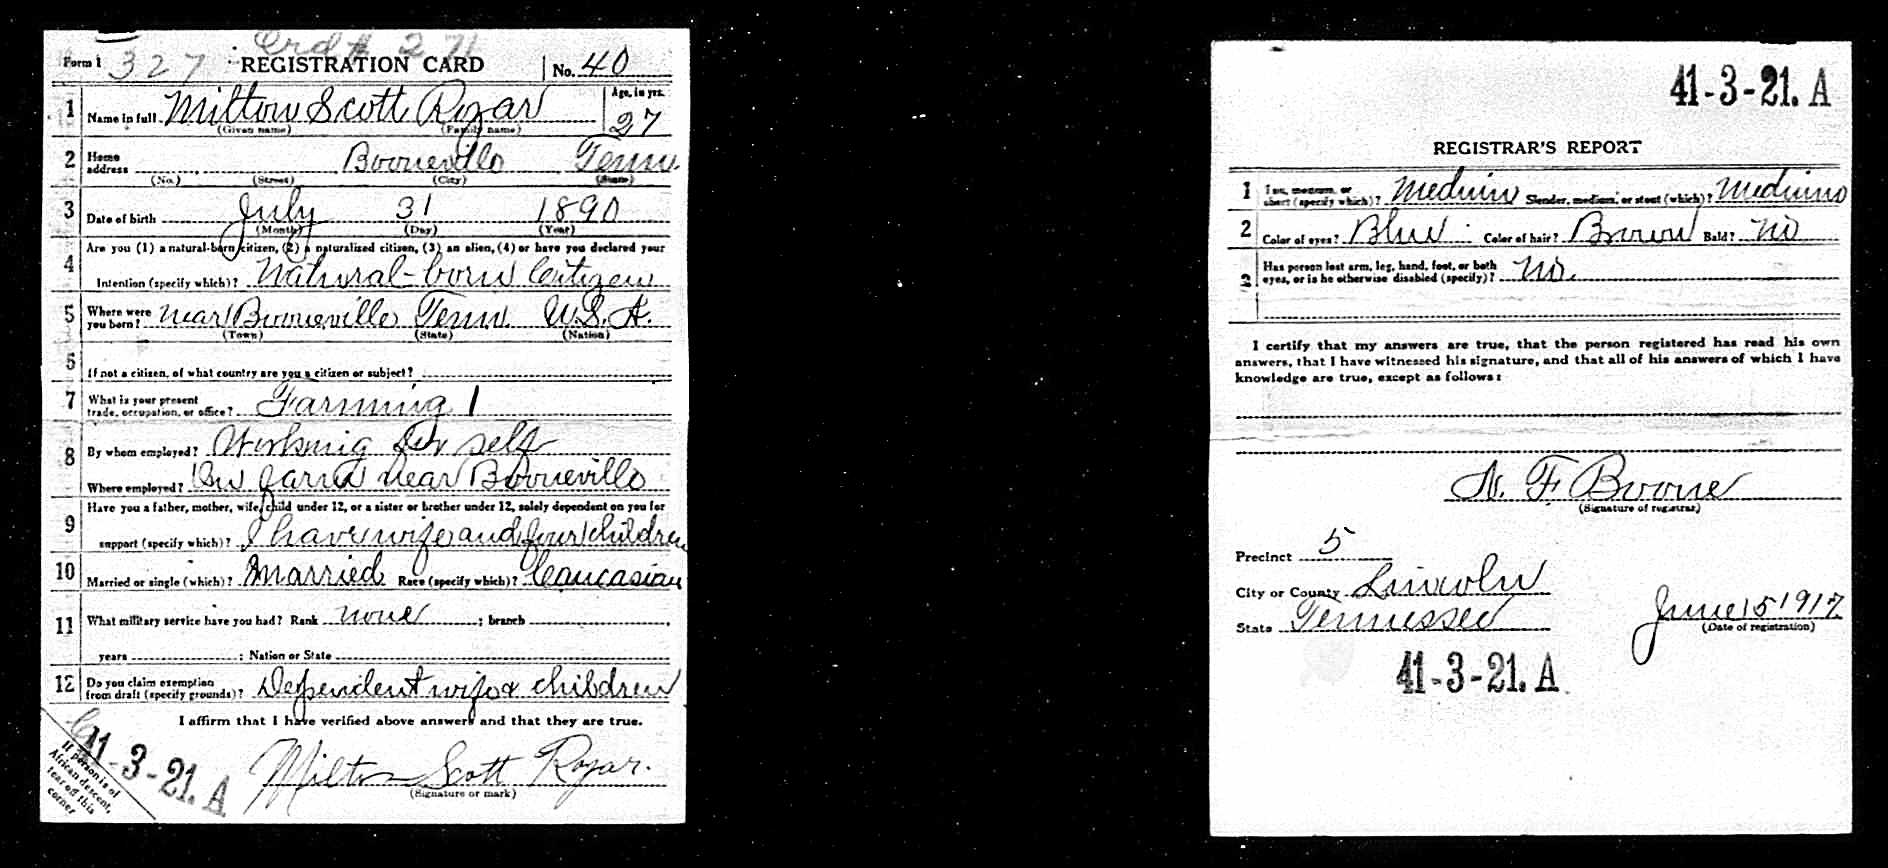 Ord # 271
Form 1 327 REGISTRATION CARD No. 40
1 Name in full Milton Scott Rozar Age, in yrs. 27
(Given name) (Family name)
2 Home address Booneville Tenn
(No.) (Street) (City) (State)
3 Date of birth July 31 1890
(Month) (Day) (Year)
4 Are you (1) a natural-born citizen, (2) a naturalized citizen, (3) an alien, (4) or have you declared your
intention (specify which)? Natural-born Citizen
5 Where were you born? near Booneville Tenn. U.S.A.
(Town) (State) (Nation)
6 If not a citizen, of what country are you a citizen or subject?
7 What is your present trade, occupation, or office? Farming 1
8 By whom employed? Working for self
Where employed? On farm near Booneville
9 Have you a father, mother, wife, child under 12, or a sister or brother under 12, solely dependent on you for
support (specify which)? I have wife and four children
10 Married or single (which)? Married Race (specify which)? Caucasian
11 What military service have you had? Rank none ; branch
years ; Nation or State
12 Do you claim exemption from draft (specify grounds)? Dependent wife & children
I affirm that I have verified above answers and that they are true.
Milton Scott Rozar.
(Signature or mark)
If person is of African descent, tear off this corner
41-3-21. A
41-3-21. A
REGISTRAR'S REPORT
1 Tall, medium, or short (specify which)? Medium Slender, medium, or stout (which)? Medium
2 Color of eyes? Blue Color of hair? Brown Bald? No
3 Has person lost arm, leg, hand, foot, or both eyes, or is he otherwise disabled (specify)? No.
I certify that my answers are true, that the person registered has read his own
answers, that I have witnessed his signature, and that all of his answers of which I have
knowledge are true, except as follows:
N. F. Boone
(Signature of registrar)
Precinct 5
City or County Lincoln
State Tennessee
June 5 1917
(Date of registration)
41-3-21. A